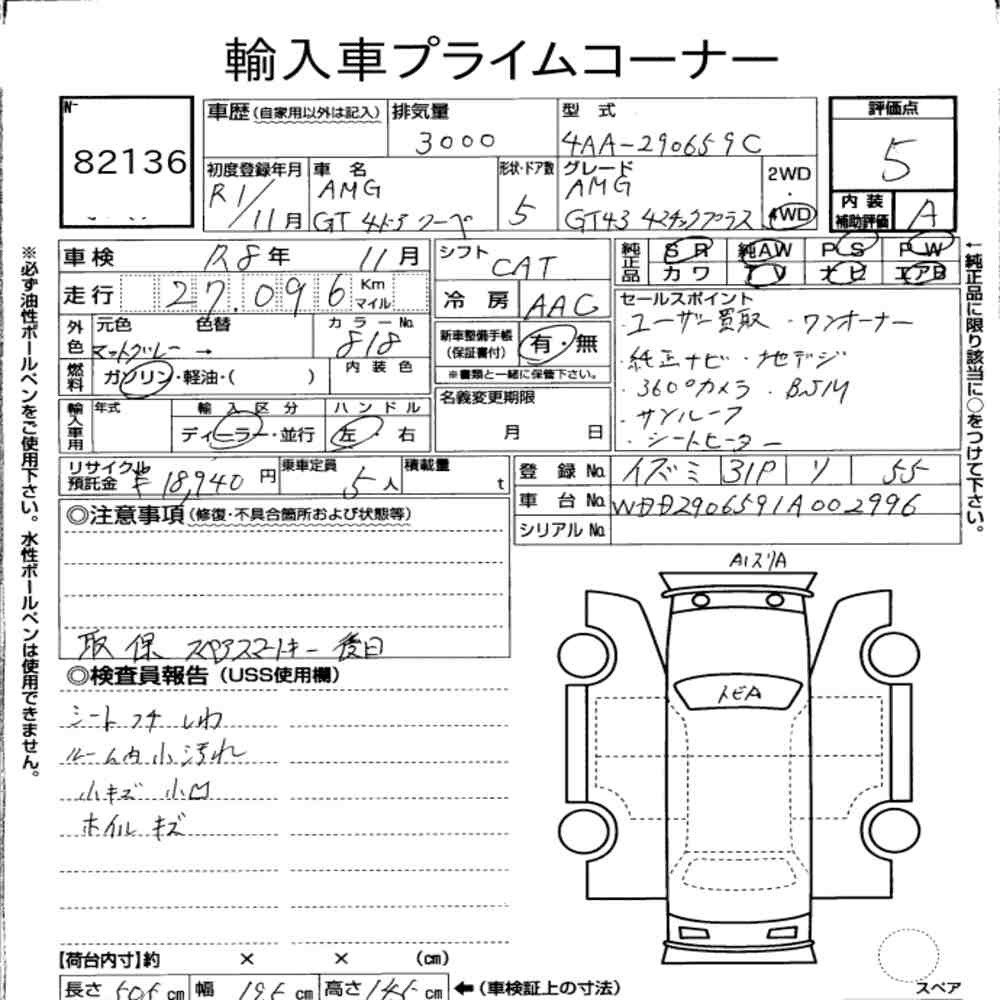 輸入車プライムコーナー
№ 82136
車歴(自家用以外は記入) 排気量 3000 型式 4AA-290659C
評価点 5
初度登録年月 R1/11月 車名 AMG GT 4ドア クーペ 形状・ドア数 5 グレード AMG GT43 4マチックプラス 2WD・4WD
内装補助評価 A
車検 R8年 11月 シフト CAT
純正品 SR 純AW PS PW
カワ TV ナビ エアB
走行 27.096 Km マイル 冷房 AAC
セールスポイント
・ユーザー買取 ・ワンオーナー
・純正ナビ・地デジ
・360°カメラ・BSM
・サンルーフ
・シートヒーター
外色 元色 マットグレー → 色替 カラーNo. 818
新車整備手帳(保証書付) 有・無
※書類と一緒に保管下さい。
燃料 ガソリン・軽油・( ) 内装色
名義変更期限 月 日
輸入車用 年式 輸入区分 ハンドル
ディーラー・並行 左・右
リサイクル預託金 ¥18,940円 乗車定員 5人 積載量 t
登録No. イズミ 31P ソ 55
車台No. WDD2906591A002996
シリアルNo.
◎注意事項(修復・不具合箇所および状態等)
取 保 スペアスマートキー 後日
◎検査員報告(USS使用欄)
シート フチ しわ
ルーム内 小汚れ
小キズ 小凹
ホイル キズ
A1スリA
トビA
スペア
【荷台内寸】約 × × (cm)
長さ 505cm 幅 195cm 高さ 145cm ←(車検証上の寸法)
※必ず油性ボールペンをご使用下さい。水性ボールペンは使用できません。
←純正品に限り該当に○をつけて下さい。